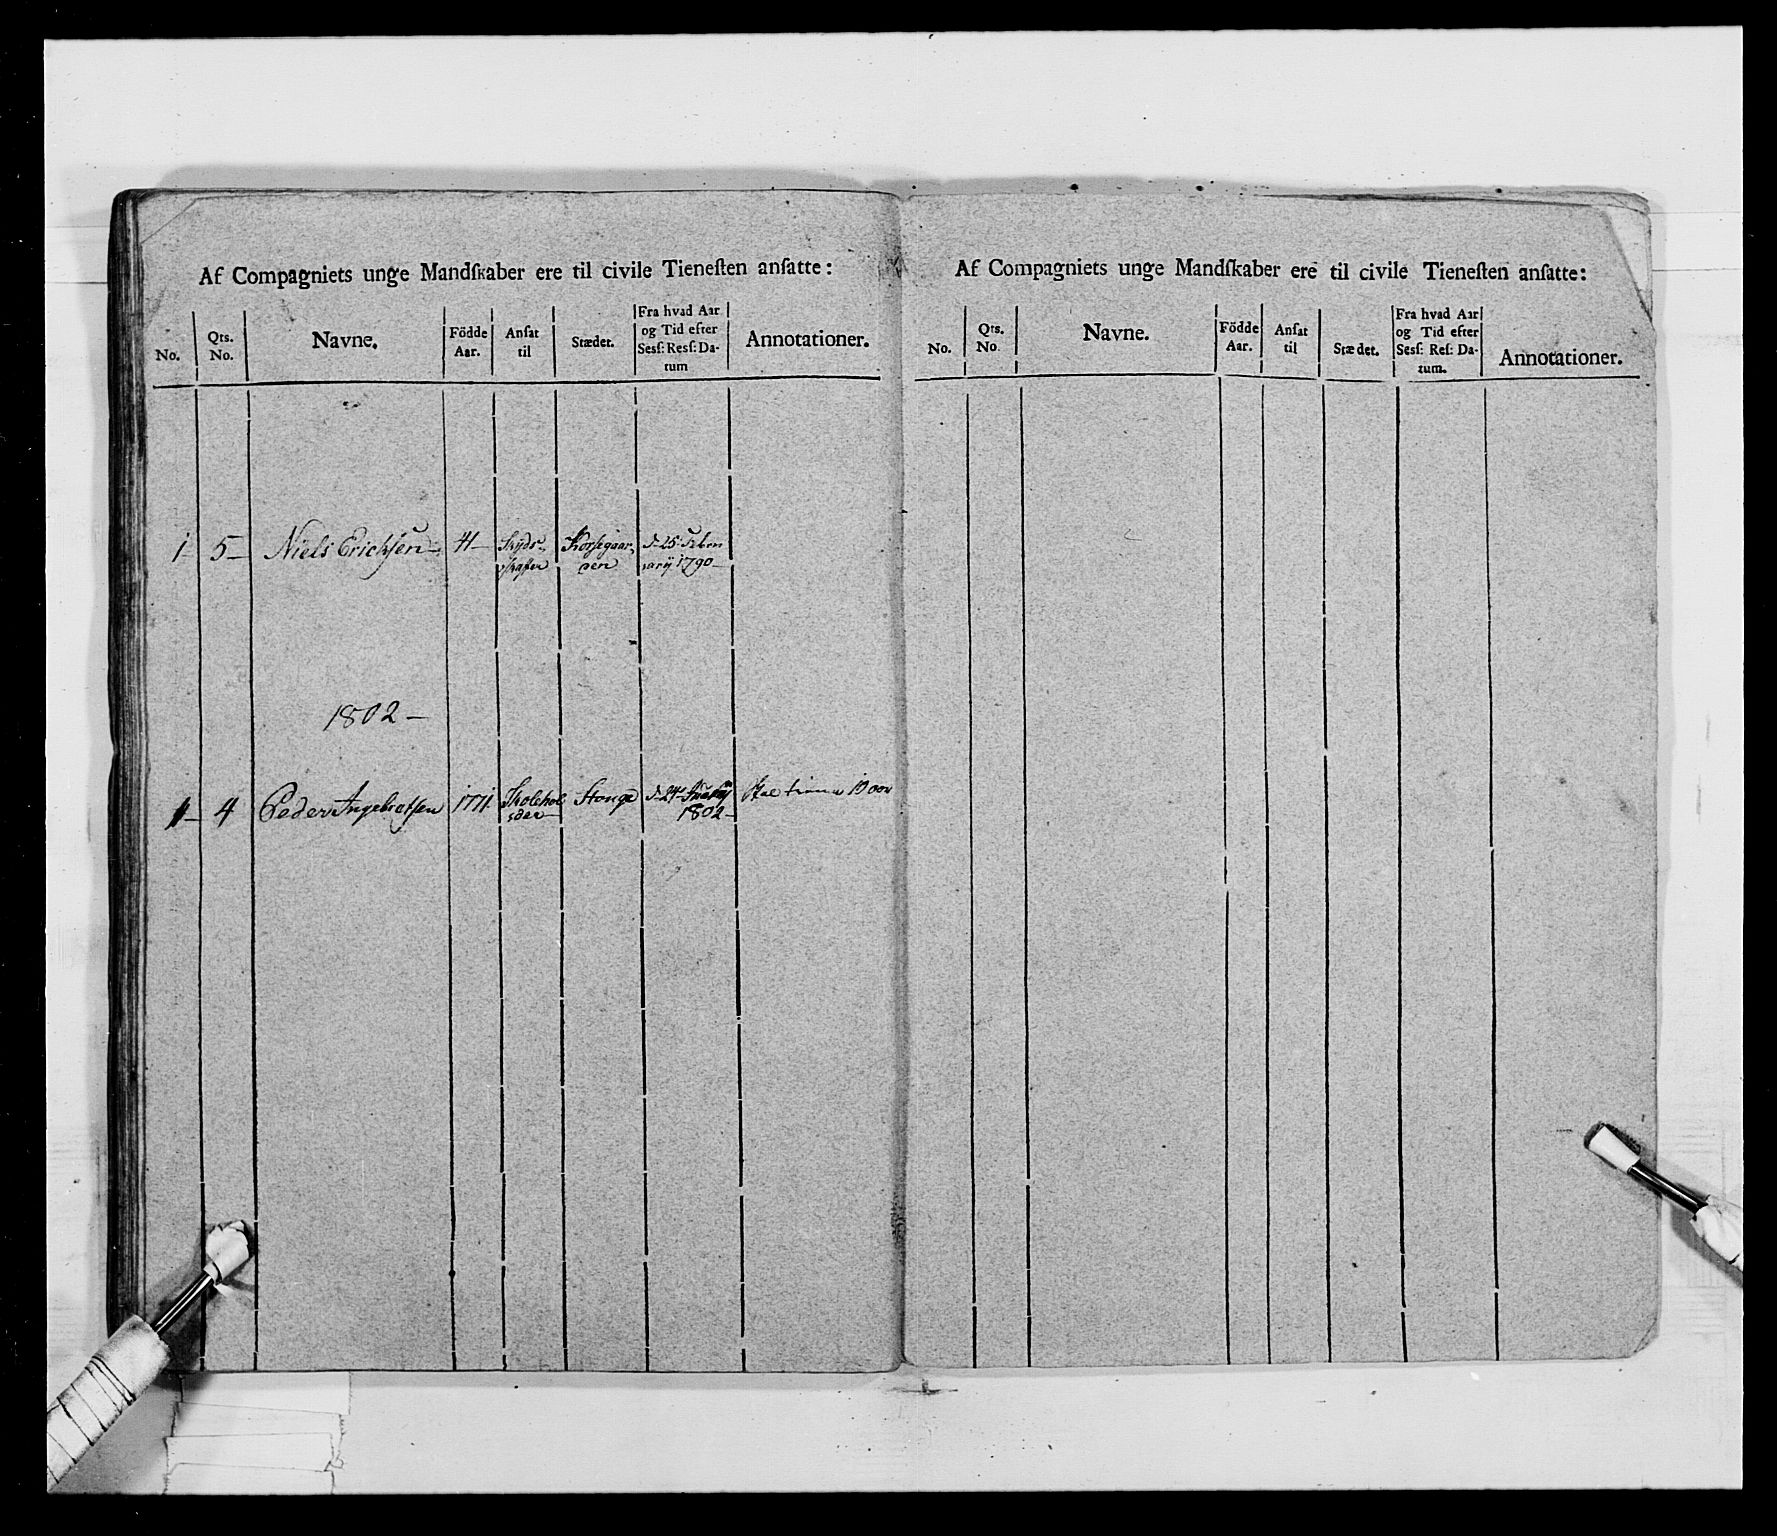 Af Compagniets unge Mandſkaber ere til civile Tieneſten anſatte:
No. Qts. No. Navne. Födde Aar. Anſat til Stædet. Fra hvad Aar og Tid efter Sesſ: Resſ: Datum Annotationer.
1 5 Niels Erichsen 41 Skyds-skaffer Korsegaarden d. 25 Februarij 1790
1802
1 4 Peder Ingebretsen 1771 Skoleholder Stange d. 24 1802 Skal tiene 10 aar
Af Compagniets unge Mandſkaber ere til civile Tieneſten anſatte:
No. Qts. No. Navne. Födde Aar. Anſat til Stædet. Fra hvad Aar og Tid efter Sesſ: Reſ: Datum. Annotationer.